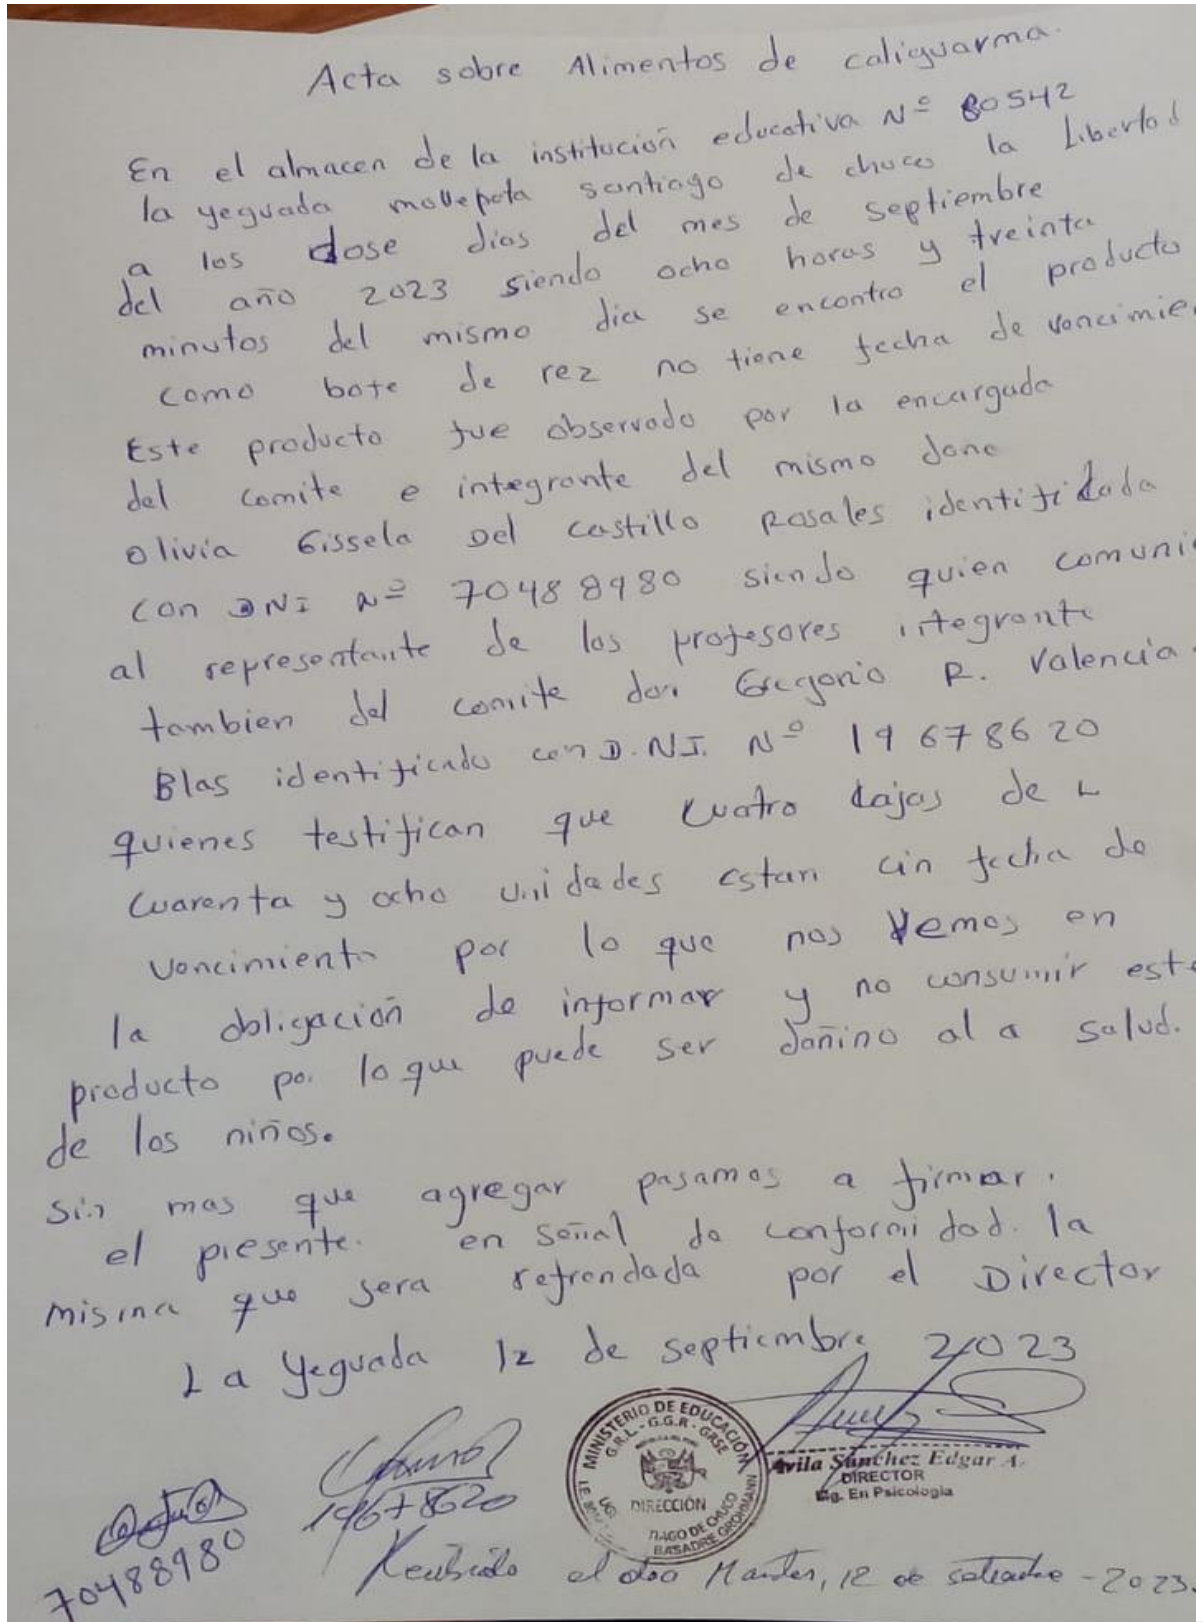 Acta sobre Alimentos de caliguarma.
En el almacen de la institución educativa Nº 80542
la yeguada mollepata santiago de chuco la Libertad
a los dose dias del mes de septiembre
del año 2023 siendo ocho horas y treinta
minutos del mismo dia se encontro el producto
como bote de rez no tiene fecha de vencimie
Este producto fue observado por la encargada
del comite e integrante del mismo done
olivia Gissela Del Castillo Rosales identifidada
con DNI Nº 70488980 siendo quien comunic
al representante de los profesores integrante
tambien del comite don Gregorio R. Valencia
Blas identificado con D.NI. Nº 19678620
quienes testifican que cuatro cajas de
cuarenta y ocho unidades estan cin fecha de
vencimiento por lo que nos vemos en
la obligación de informar y no consumir este
producto por lo que puede ser dañino al a salud.
de los niños.
Sin mas que agregar pasamos a firmar.
el presente. en señal de conformidad. la
misma que sera refrendada por el Director
La Yeguada 12 de septiembre 2023
MINISTERIO DE EDUCACIÓN
G.R.L - G.G.R - GRSE
DIRECCIÓN
TIAGO DE CHUCO
BASADRE GROHMANN
Avila Sánchez Edgar A.
DIRECTOR
Mg. En Psicologia
19678620
70488980
Recibido el día Martes, 12 de setiembre - 2023.